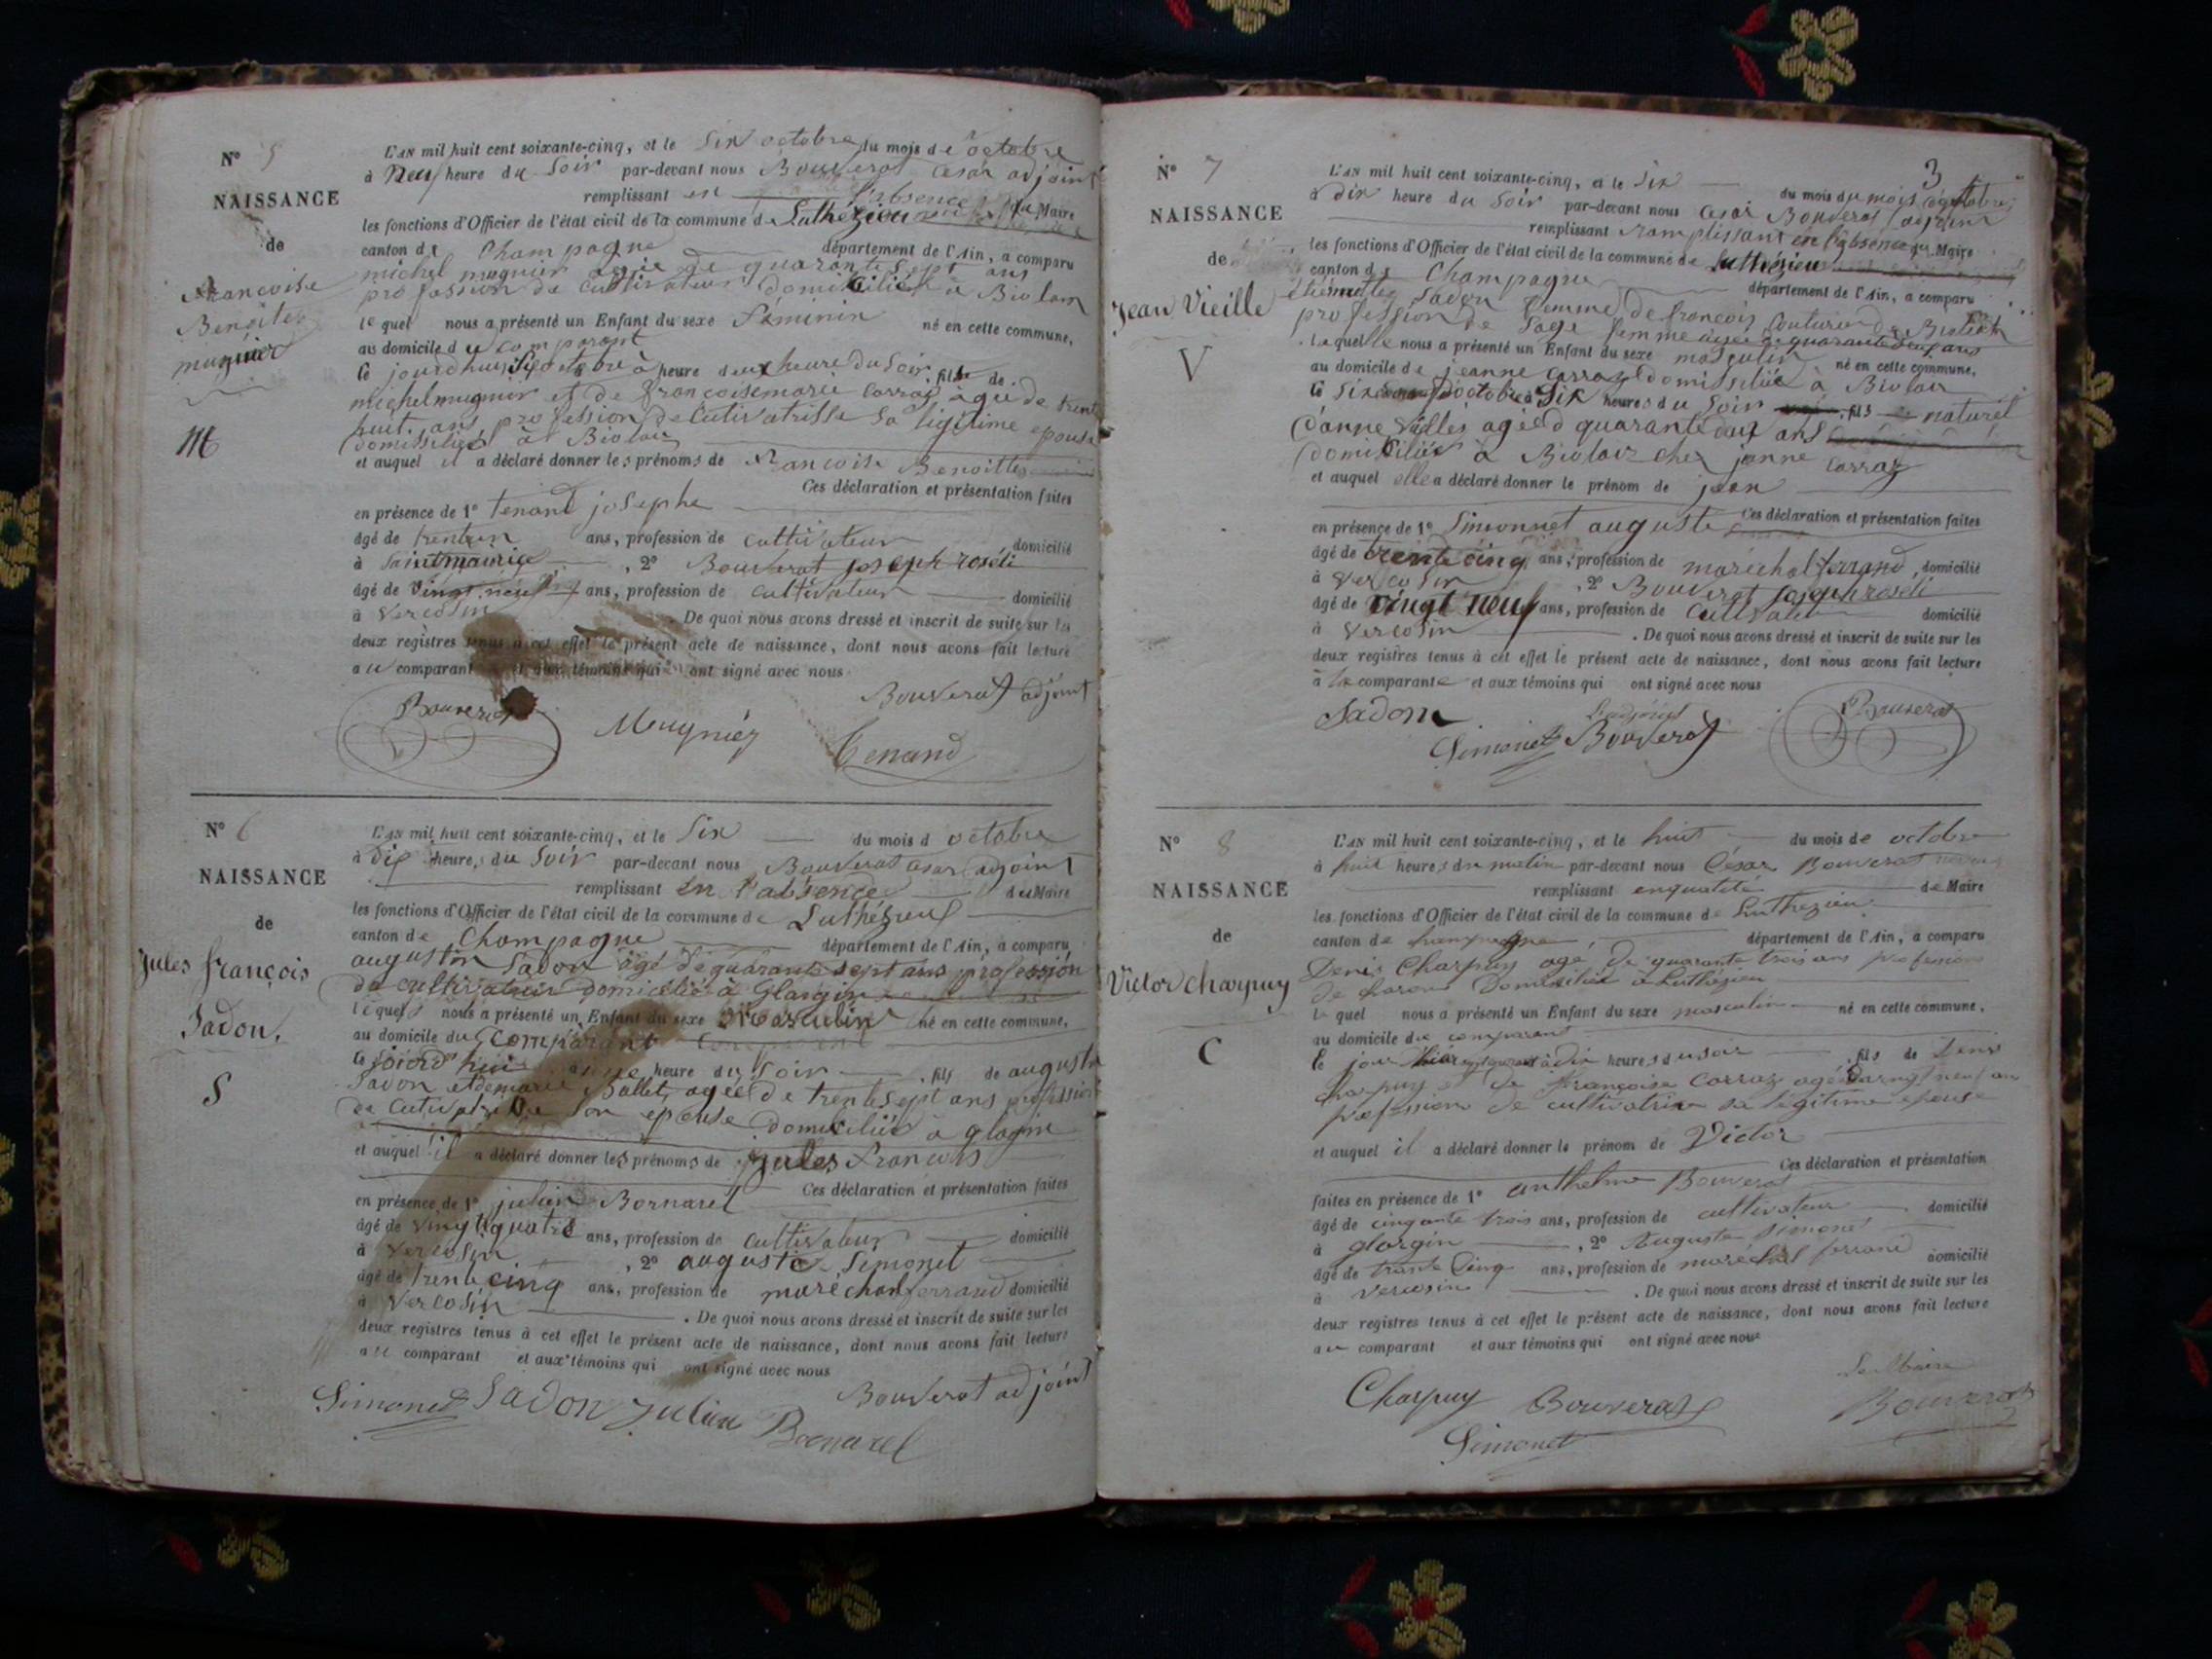 N° 5
NAISSANCE
de
Francoise
Benoite
mugnier
M
L'AN mil huit cent soixante-cinq, et le Six octobre du mois de octobre
à Neuf heure du Soir par-devant nous Bouverat César adjoint
remplissant en l'absence du Maire
les fonctions d'Officier de l'état civil de la commune de Luthézieu
canton de Champagne département de l'Ain, a comparu
michel mugnier agée de quarante sept ans
profession de cultivateur domicilié à Biolaz
le quel nous a présenté un Enfant du sexe Féminin né en cette commune,
au domicile du comparant
le jourdhui à heure deux heure du Soir fille de
michel mugnier et de francoise marie Carraz agée de trente
huit ans profession de Cultivatrisse Sa ligitime épouse
domissiliée à Biolaz
et auquel il a déclaré donner les prénoms de francoise Benoitte
Ces déclaration et présentation faites
en présence de 1° tenand josephe
âgé de trentun ans, profession de cultivateur domicilié
à Saintmaurice , 2° Bouverat joseph roséli
âgé de Vingt neuf ans, profession de cultivateur domicilié
à Vercosin . De quoi nous avons dressé et inscrit de suite sur les
deux registres tenus à cet effet le présent acte de naissance, dont nous avons fait lecture
au comparant et aux témoins qui ont signé avec nous
Bouverat adjoint
Bouverat Mugnier Tenand
N° 6
NAISSANCE
de
Jules françois
Sadon.
S
L'AN mil huit cent soixante-cinq, et le Six du mois d octobre
à Dix heures du Soir par-devant nous Bouverat César adjoint
remplissant en l'absence du Maire
les fonctions d'Officier de l'état civil de la commune de Luthézieu
canton de Champagne département de l'Ain, a comparu
augustin Sadon âgé de quarante sept ans profession
de cultivateur domicilié à Glargin
lequel nous a présenté un Enfant du sexe Masculin né en cette commune,
au domicile du Comparant
le jiord'hui à une heure du Soir fils de augustin
Sadon et de marie Ballet agée de trente sept ans profession
de cultivatrice son epouse domiciliée à glargin
et auquel il a déclaré donner les prénoms de Jules Francois
Ces déclaration et présentation faites
en présence de 1° julien Bornarel
âgé de vingt quatre ans, profession de cultivateur domicilié
à Vercosin , 2° auguste Simonet
âgé de trente cinq ans, profession de maréchal ferrand domicilié
à Vercosin . De quoi nous avons dressé et inscrit de suite sur les
deux registres tenus à cet effet le présent acte de naissance, dont nous avons fait lecture
au comparant et aux témoins qui ont signé avec nous
Bouverat adjoint
Simonet Sadon Julien Bornarel
3
N° 7
NAISSANCE
de
Jean Vieille
V
L'AN mil huit cent soixante-cinq, et le Six du mois du mois d'octobre
à dix heure du Soir par-devant nous César Bouverat adjoint
remplissant remplissant en l'absence du Maire
les fonctions d'Officier de l'état civil de la commune de Luthézieu
canton de Champagne département de l'Ain, a comparu
Sadon femme de francois Couturier de
profession de Sage femme agée de quarante deux ans
laquelle nous a présenté un Enfant du sexe masculin né en cette commune,
au domicile de jeanne Carraz domissiliée à Biolaz
le Six d'octobre à Six heures du Soir fils naturel
d'anne agée d quarante deux ans
domiciliée à Biolaz chez janne Carraz
et auquel elle a déclaré donner le prénom de jean
Ces déclaration et présentation faites
en présence de 1° Simonnet auguste
âgé de trente cinq ans, profession de maréchal ferrand, domicilié
à Vercosin , 2° Bouverat joseph roséli
âgé de vingt neuf ans, profession de Cultivateur domicilié
à Vercosin . De quoi nous avons dressé et inscrit de suite sur les
deux registres tenus à cet effet le présent acte de naissance, dont nous avons fait lecture
à la comparante et aux témoins qui ont signé avec nous
Sadon L'adjoint Bouverat
Simonet Bouverat
N° 8
NAISSANCE
de
Victor Charpuy
C
L'AN mil huit cent soixante-cinq, et le huit du mois de octobre
à huit heures du matin par-devant nous César Bouverat
remplissant enqualité de Maire
les fonctions d'Officier de l'état civil de la commune de Luthezieu
canton de champagne département de l'Ain, a comparu
Denis Charpuy agé de quarante trois ans profession
de charon Domicilié à Luthézieu
le quel nous a présenté un Enfant du sexe masculin né en cette commune,
au domicile du comparant
le jour à dix heures du soir fils de Denis
Charpuy et de Françoise Carraz agée neuf ans
profession de cultivatrice sa légitime epouse
et auquel il a déclaré donner le prénom de Victor
Ces déclaration et présentation
faites en présence de 1° anthelme Bouverat
âgé de cinquante trois ans, profession de cultivateur domicilié
à glargin , 2° Auguste Simonet
âgé de trente Cinq ans, profession de maréchal ferrand domicilié
à Vercosin . De quoi nous avons dressé et inscrit de suite sur les
deux registres tenus à cet effet le présent acte de naissance, dont nous avons fait lecture
au comparant et aux témoins qui ont signé avec nous
Le Maire
Charpuy Bouverat Bouverat
Simonet